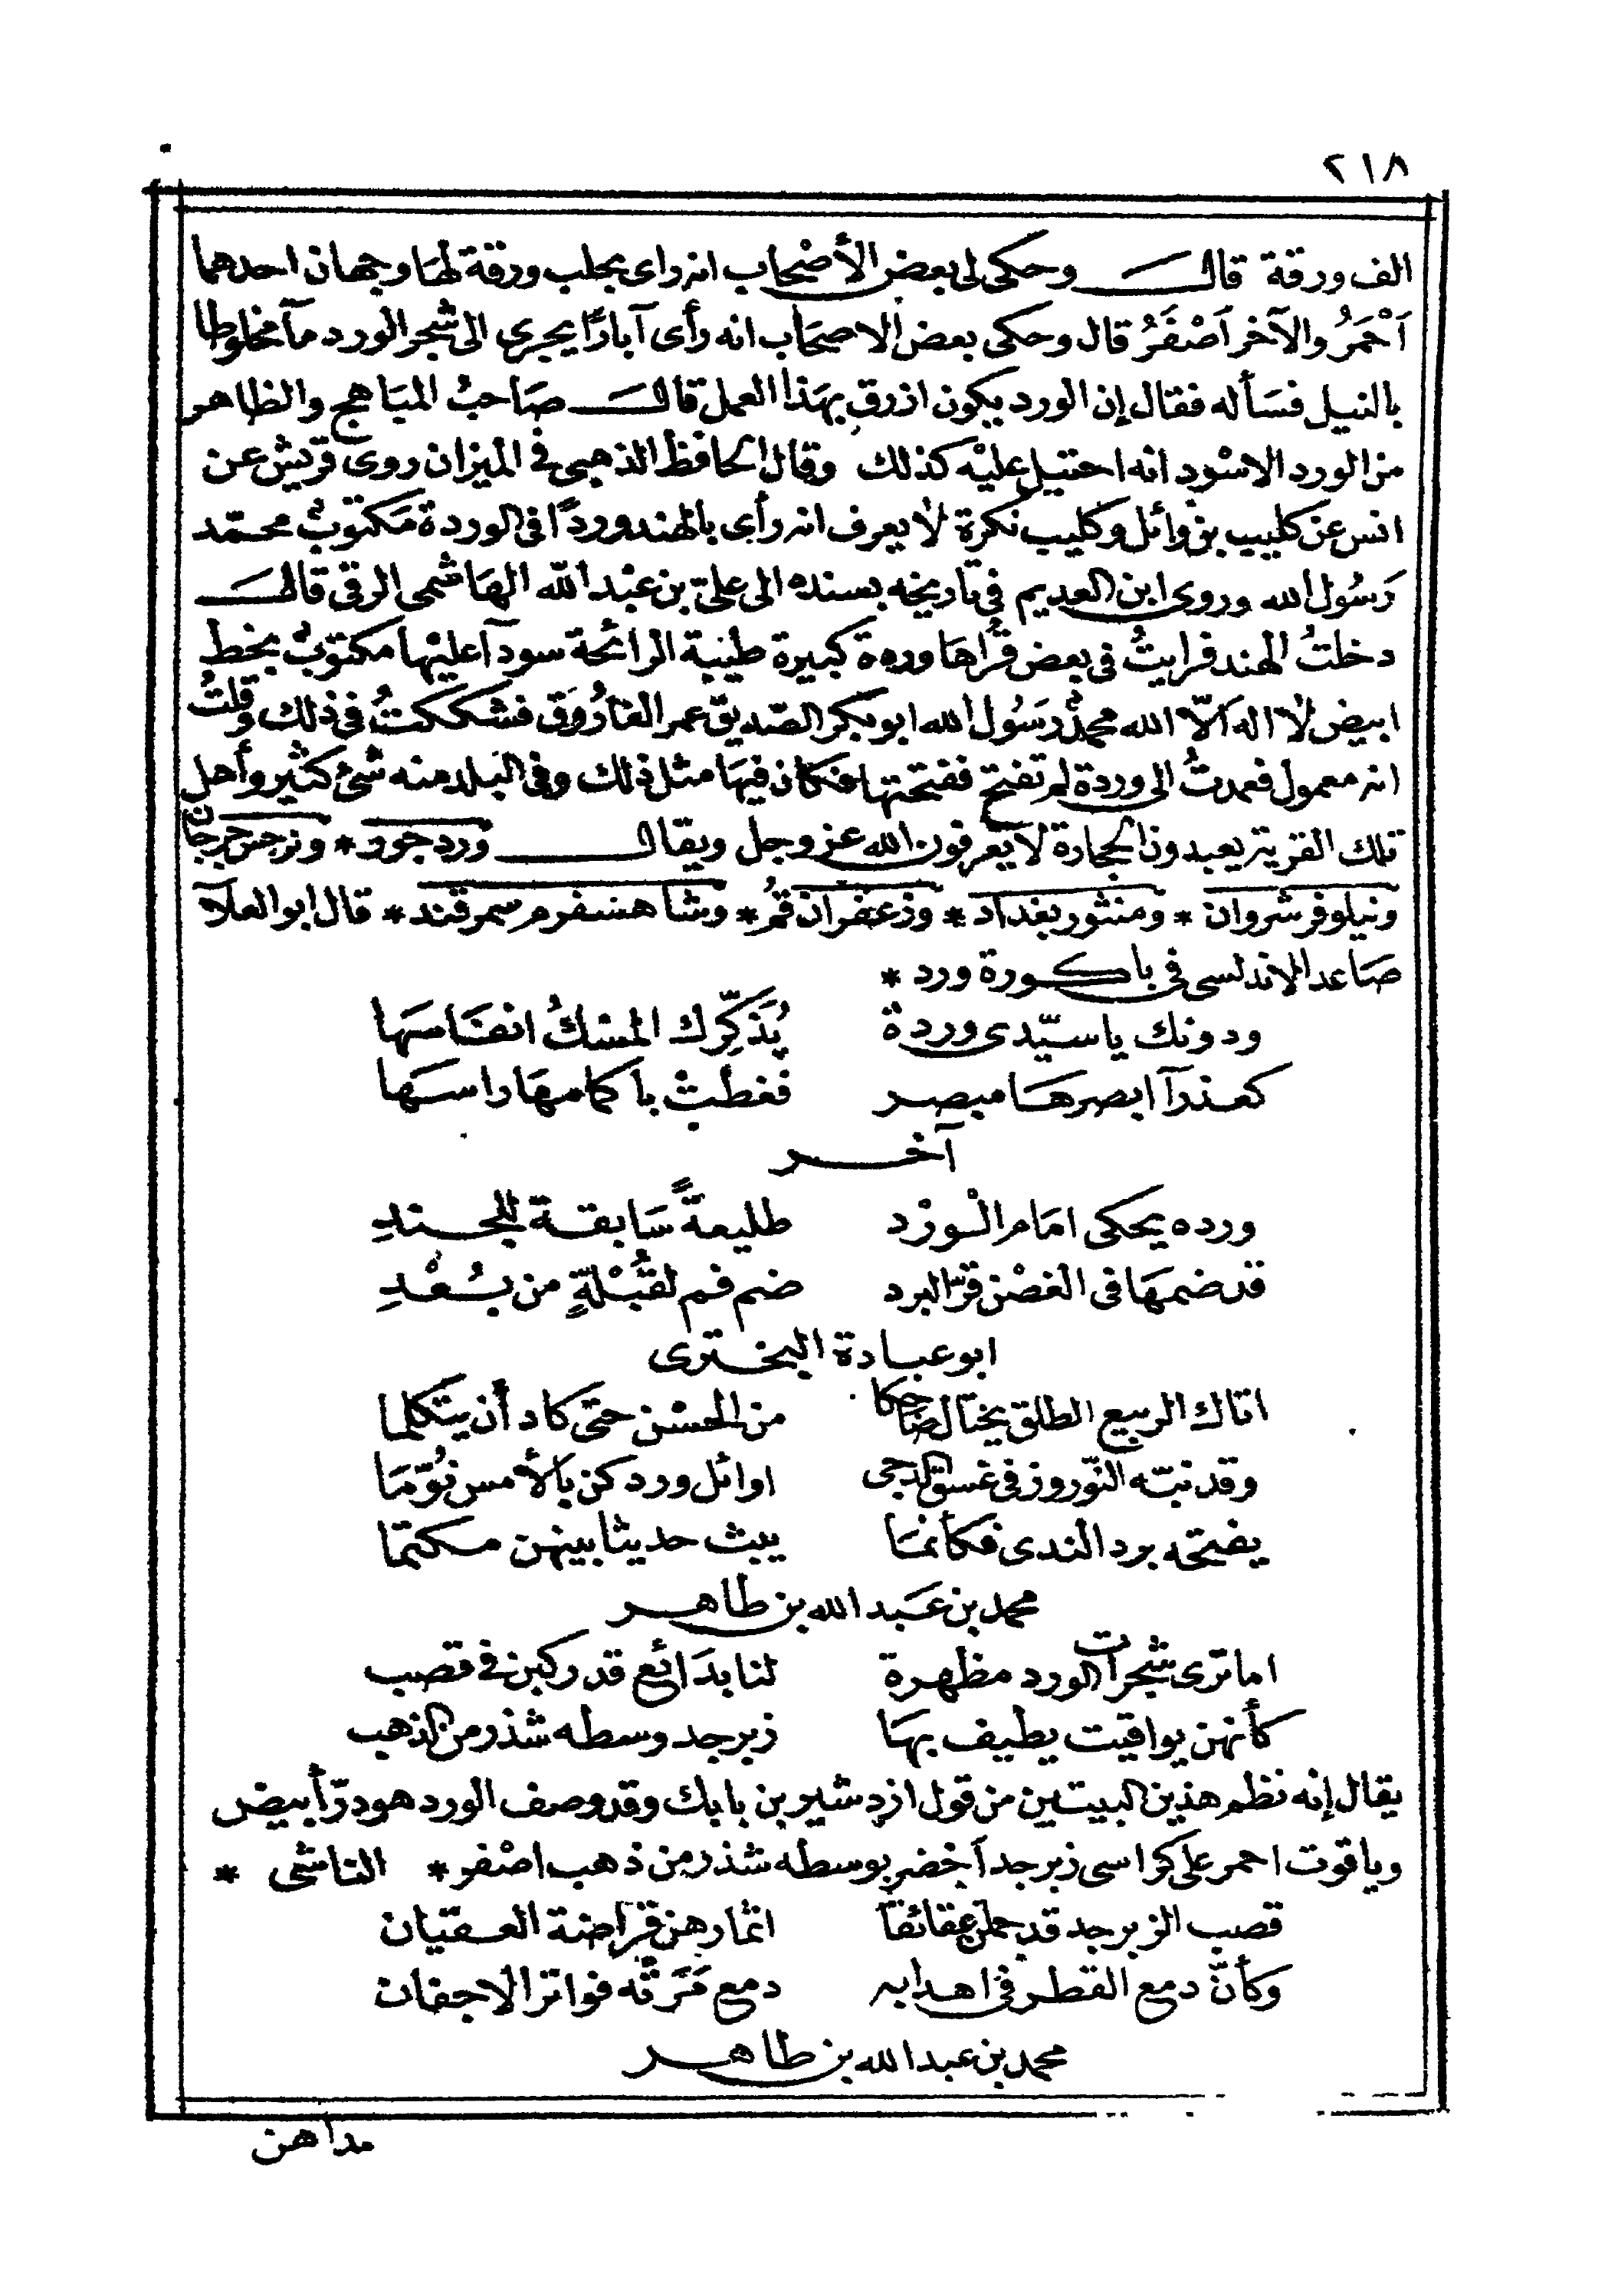 ٢١٨
الف ورقة قال وحكى لى بعض الأصْحاب انه راى بحلب ورقة لهَا وجهان احدهما
اَحْمَرُ والآخر اَصْفَرُ قال وحكى بعض الاصحَاب انه رأى آبارًا يجرى الى شجر الورد مآ مخلوطا
بالنيل فسَأله فقال إن الورد يكون ازرق بهَذا العمل قال صَاحبُ المبَاهج والظاهر
من الورد الاسْود انه احتيل عليْه كذلك وقال الحافظ الذهبى فى الميزان روى قريش عن
انس عن كليب بن وائل وكليب نكرة لا يعرف انه رأى بالهند وردًا فى الوردة مَكتوبٌ محمّد
رَسُول الله وروى ابن العديم فى تاريخه بسنده الى علىّ بن عبْد الله الهَاشمى الرقى قال
دخلتُ الهند فرايتُ فى بعض قُراها وردة كبيرة طيبة الرائحة سودآ عليْها مكتوبٌ بخط
ابيض لا اله الّا الله محمدٌ رسَوُل الله ابو بكر الصّديق عمر الفارُوَق فشككتُ فى ذلك وقلتُ
انه معمول فعمدتُ الى وردة لم تفتح ففتحتها فكان فيهَا مثل ذلك وفى البلد منه شئ كثير وأهل
تلك القرية يعبدون الحجارة لا يعرفون الله عز وجل ويقال ورد جور * ونرجس جرجان
ونيلوفر شروان * ومنثور بغداد * وزعفران قُم * وشاهسفرم سمرقند * قال ابو العلآ
صَاعد الاندلسى فى باكورة ورد *
ودونك يا سيّدى وردة يُذَكِّرك المسْكُ انفَاسَها
كعذرآ ابصرهَا مبصر فغطتْ باكمامهَا راسَها
آخر
ورده يحكى امَام الْورْد طليعةً سَابقة للجندِ
قد ضمهَا فى الغصْن قرّ البرد ضم فم لقُبْلةٍ من بُعْدِ
ابو عبادة البخترى
اتاك الربيع الطلق يختال ضاحكا من الحسْن حتى كاد أن يتكلما
وقد نبّه النّوروز فى غسق الدجى اوائل ورد كن بالأمس نُوّمَا
يفتحه برد الندى فكأنمَا يبث حديثا بينهن مكتما
محمد بن عَبد الله بن طاهر
اما ترى شجرات الورد مظهرة لنا بدَائع قد ركبن فى قصب
كأنهن يواقيت يطيف بهَا زبرجد وسطه شذر من الذهب
يقال إنه نظم هذين البيتين من قول ازدشير بن بابك وقد وصف الورد هو درّ أبيض
وياقوت احمر على كراسى زبرجد اَخضر بوسطه شذر من ذهب اصْفر * الناشى *
قصب الزبرجد قد حملن عقائقا اثمارهن قراضة العقيان
وكأنّ دمع القطر فى اهدابه دمع مَرَتْه فواتر الاجفان
محمد بن عبد الله بن طاهر
مداهن